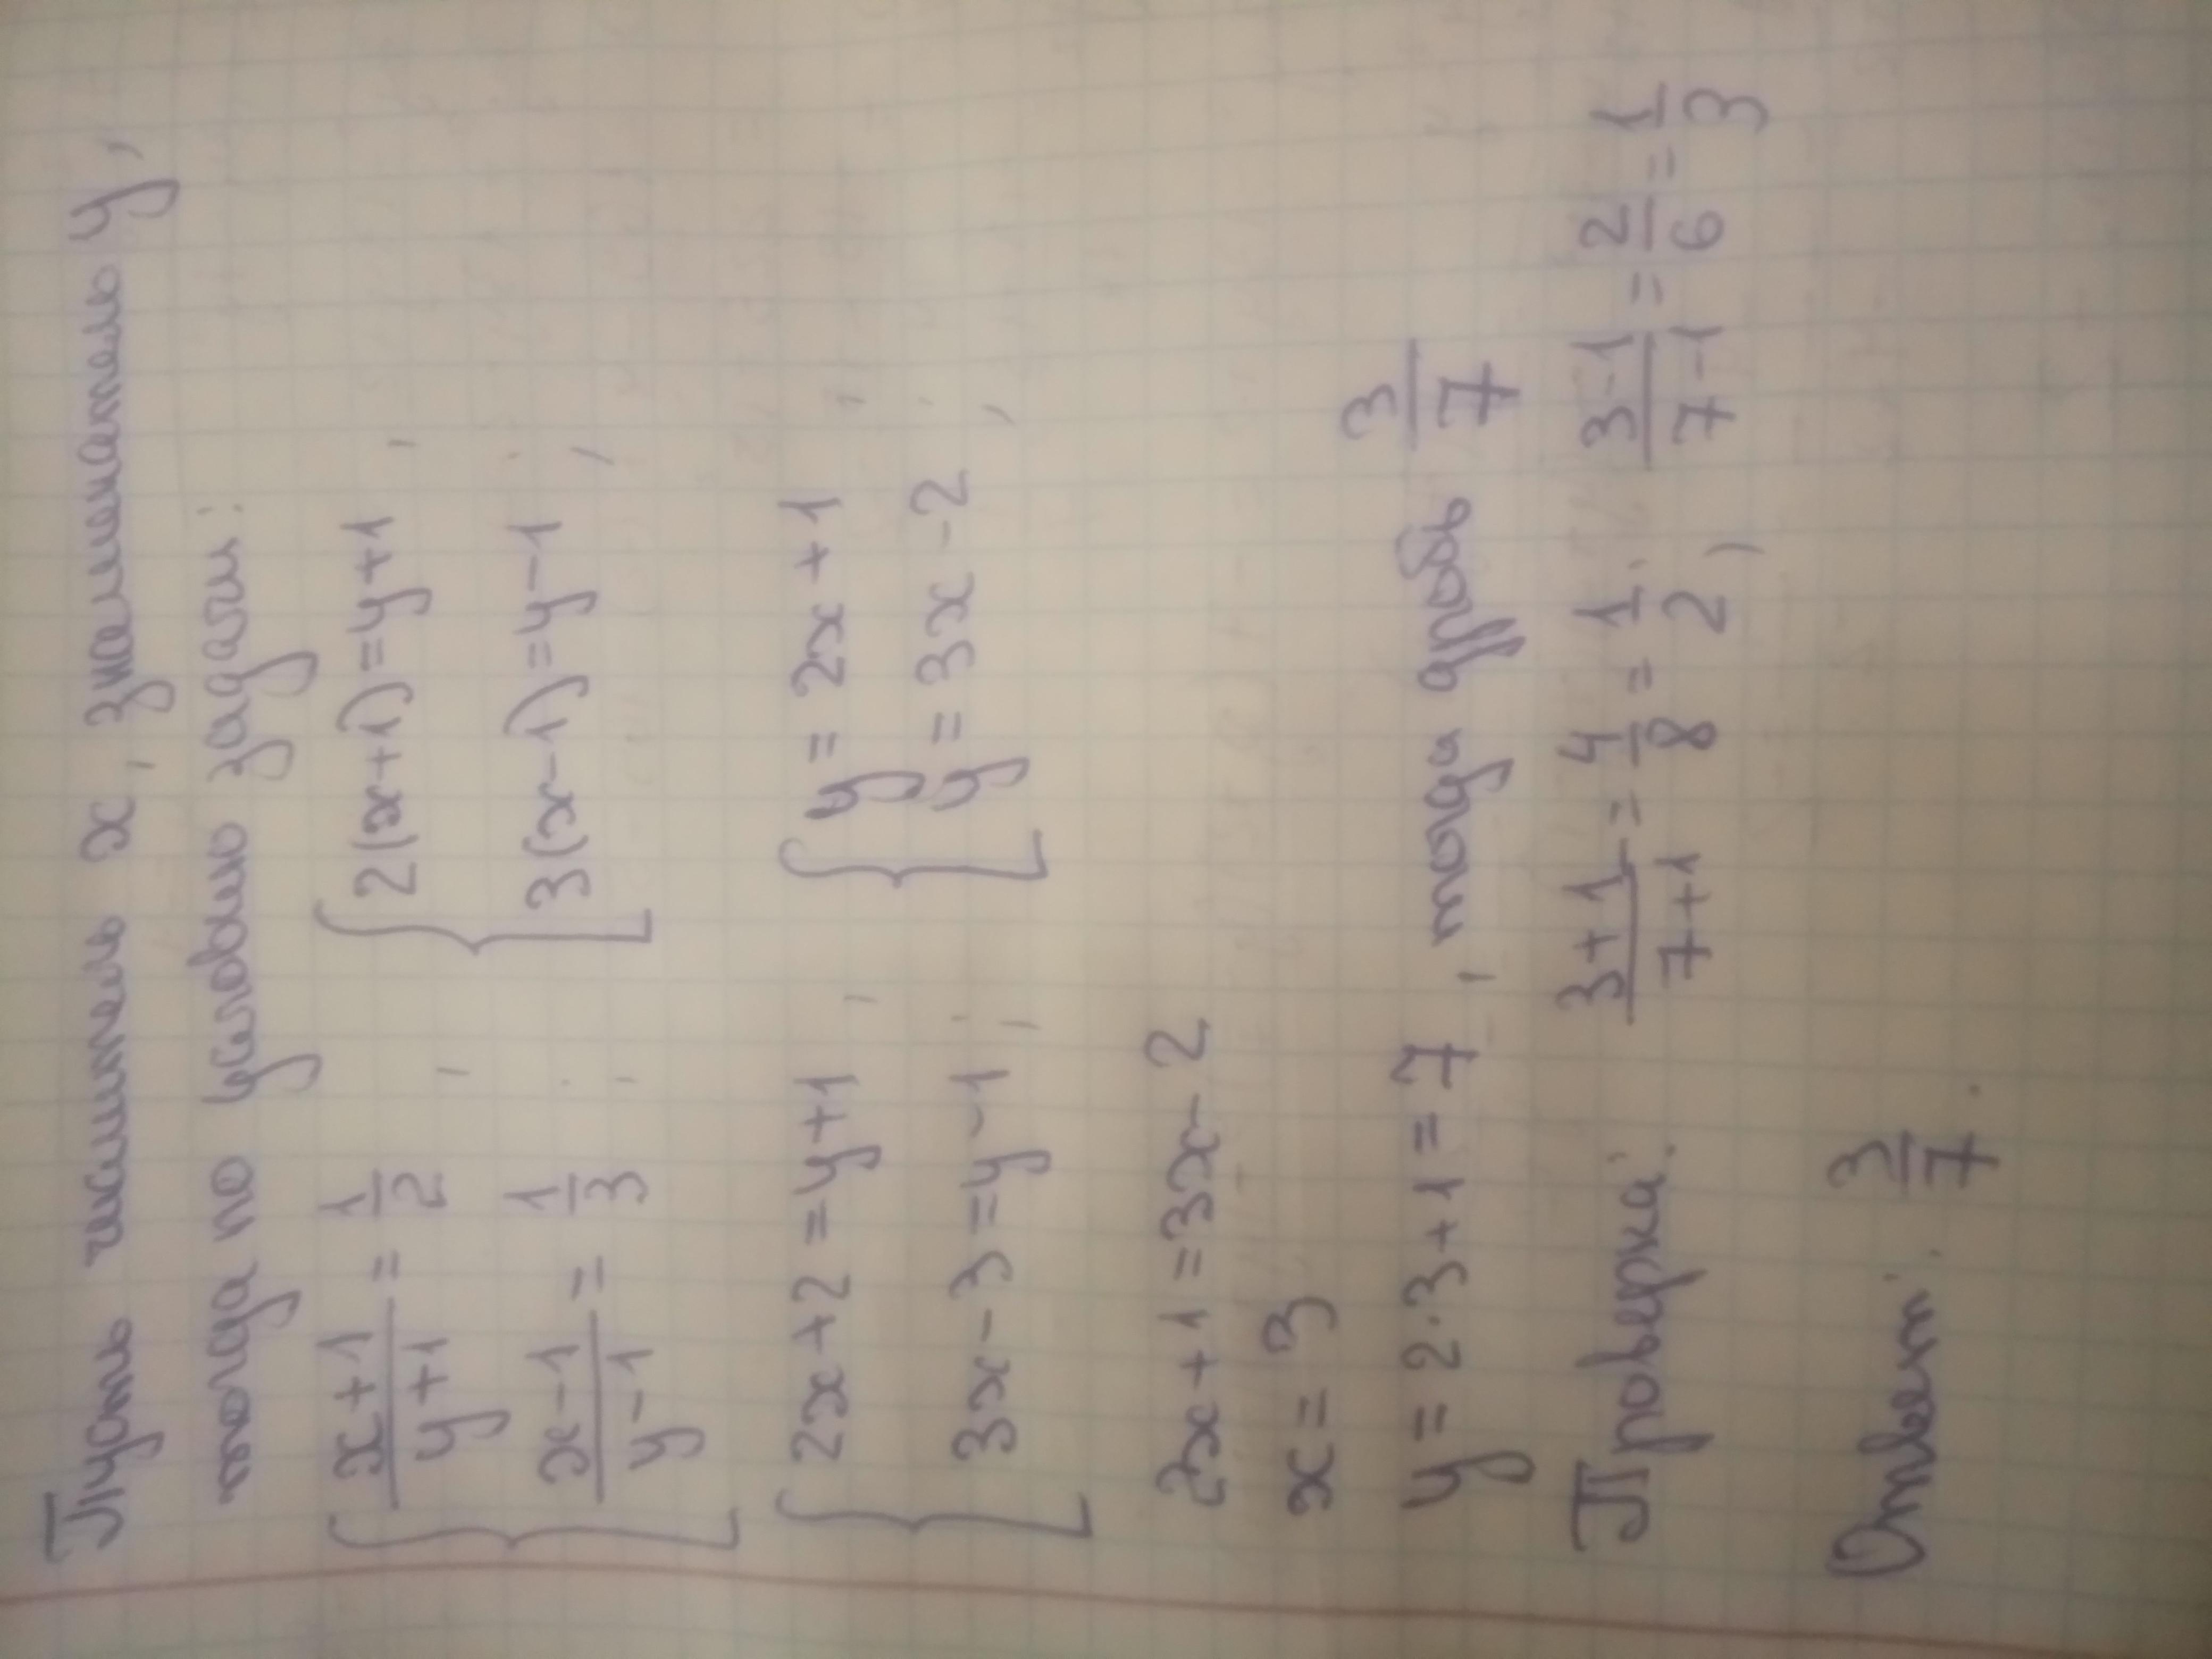 Пусть числитель x, знаменатель y,
тогда по условию задачи:
{ (x+1)/(y+1) = 1/2, { 2(x+1)=y+1,
(x-1)/(y-1) = 1/3; 3(x-1)=y-1;
{ 2x+2=y+1, { y=2x+1,
3x-3=y-1; y=3x-2;
2x+1=3x-2
x=3
y=2·3+1=7, тогда дробь 3/7
Проверка: (3+1)/(7+1) = 4/8 = 1/2; (3-1)/(7-1) = 2/6 = 1/3
Ответ: 3/7.